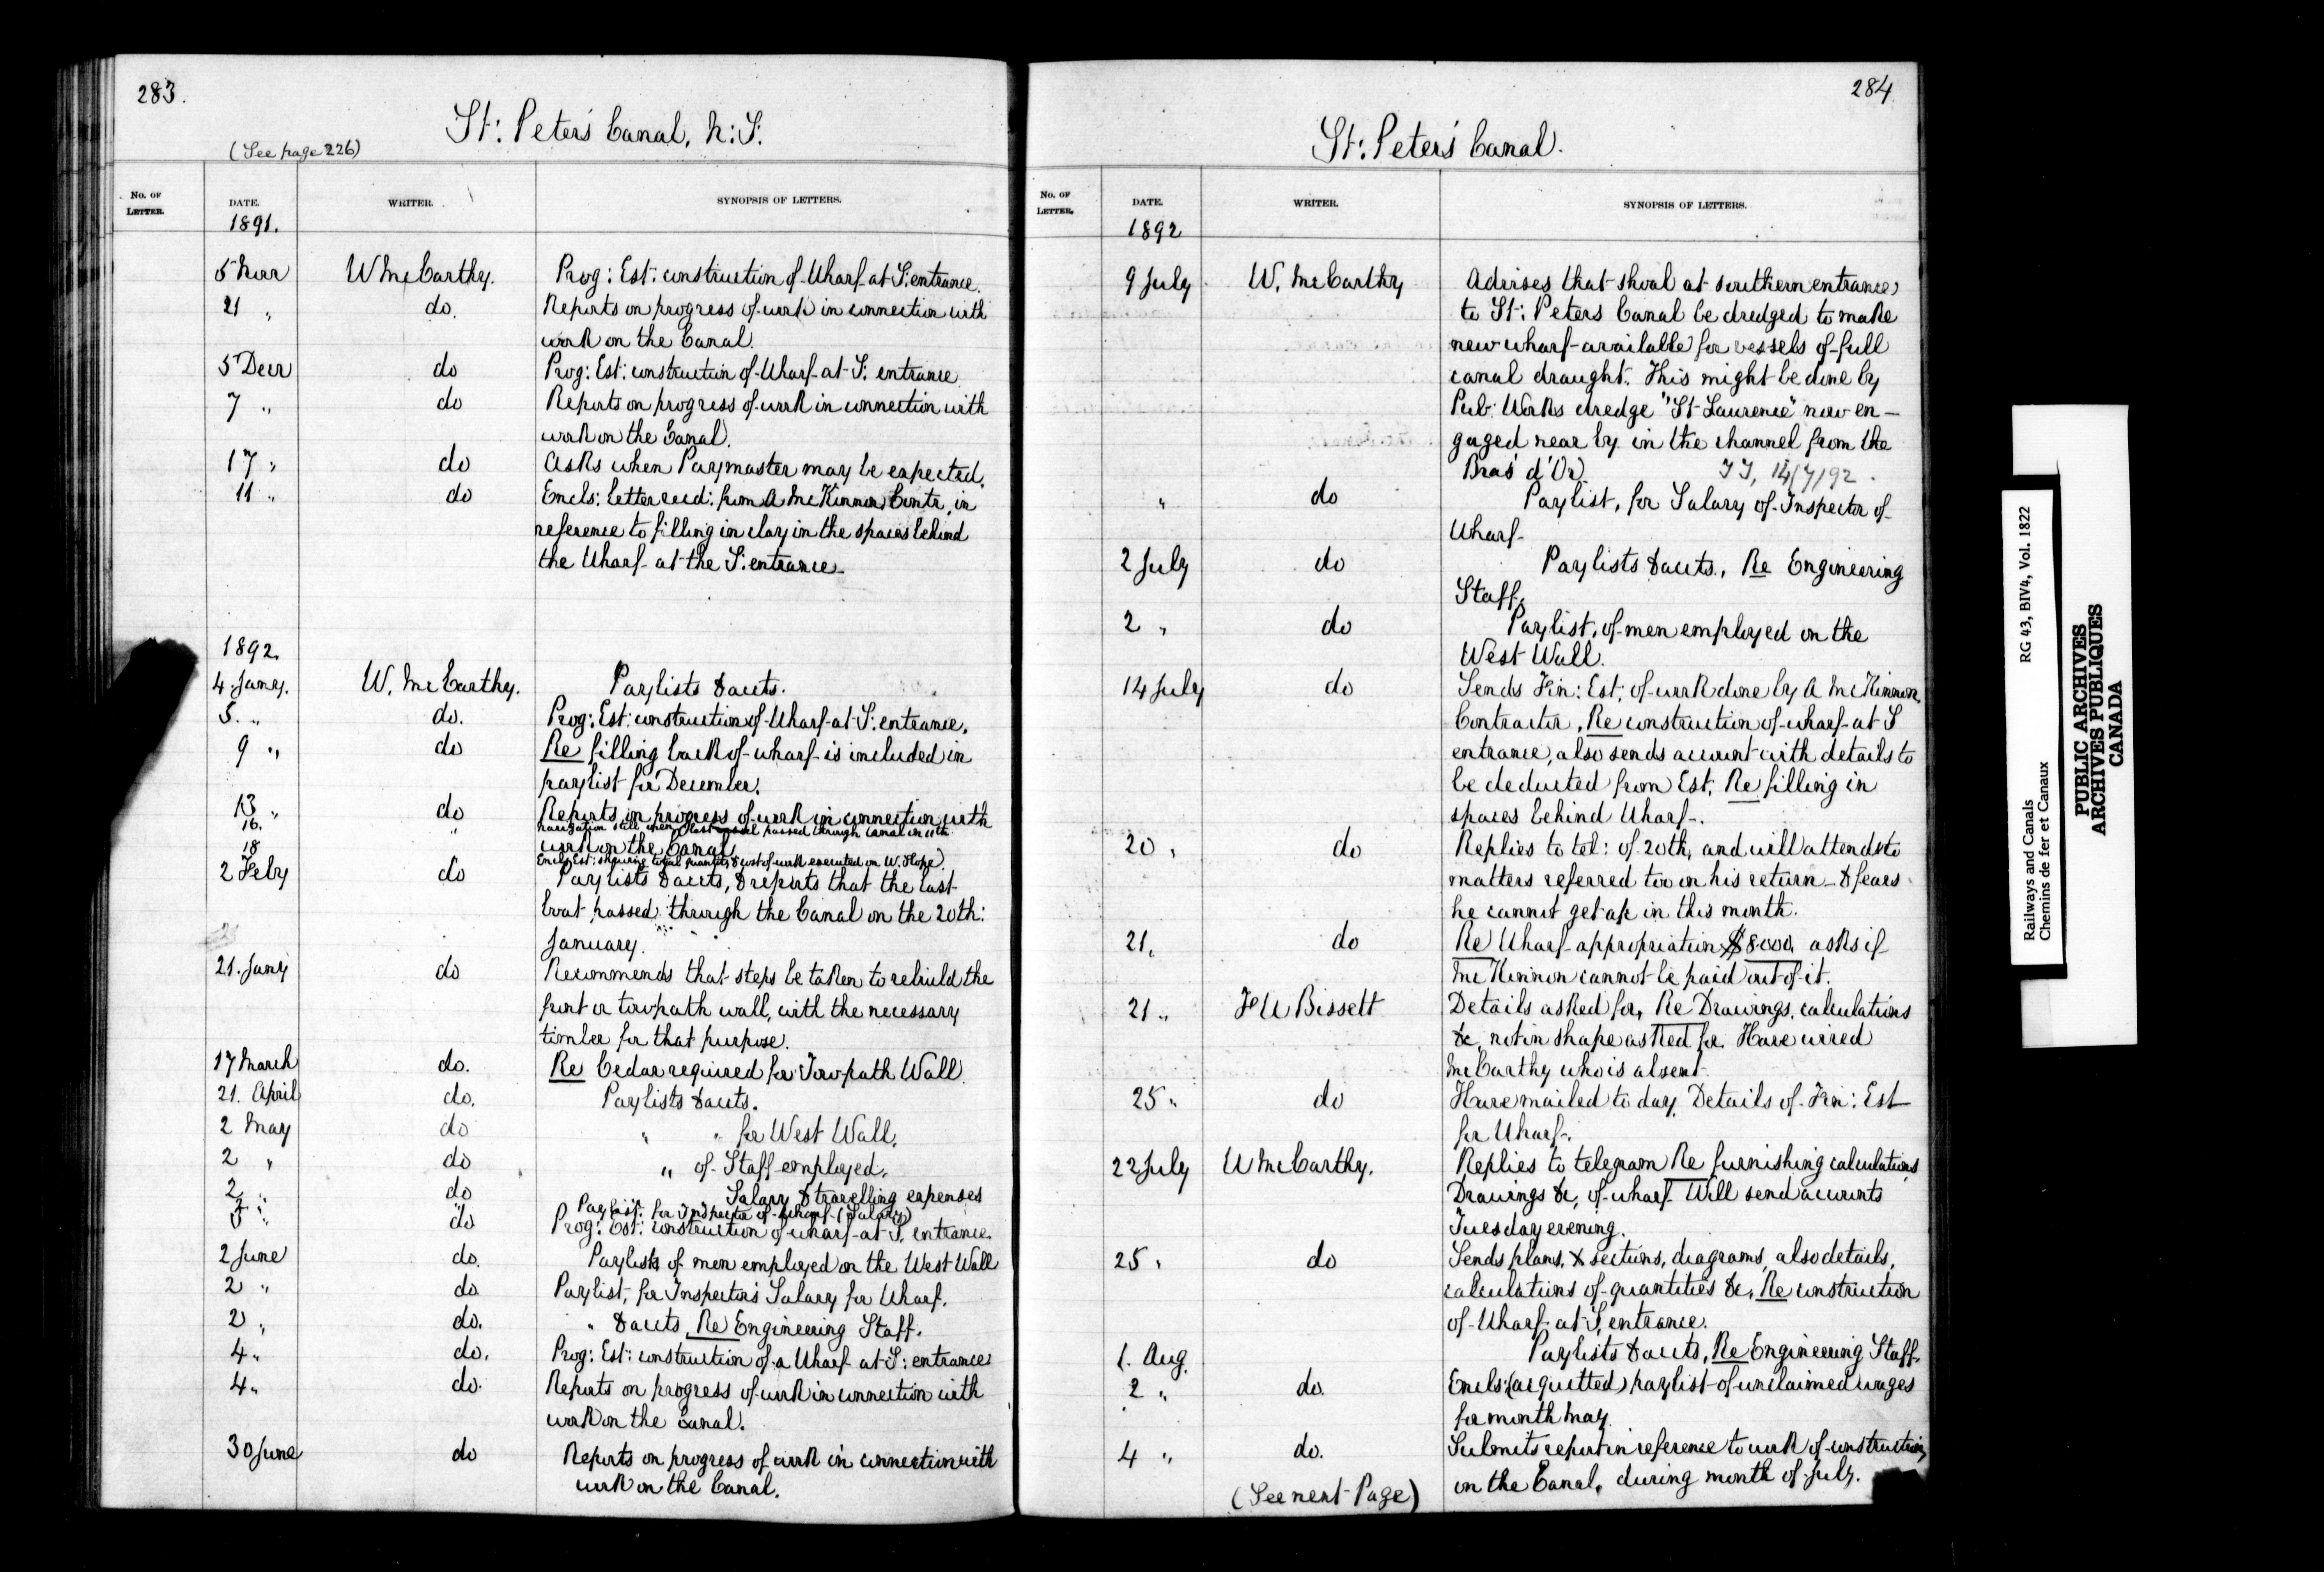 283.
St: Peter's Canal, N:S:
(See page 226)
No. OF LETTER.
DATE.
WRITER.
SYNOPSIS OF LETTERS.
1891.
5 Nov W McCarthy. Prog: Est: construction of Wharf at S: entrance.
21 " do. Reports on progress of work in connection with
work on the Canal.
5 Decr do Prog: Est: construction of Wharf at S: entrance
7 " do Reports on progress of work in connection with
work on the Canal.
17 " do Asks when Paymaster may be expected.
11 " do Encls: letter recd: from A McKinnon, Contr, in
reference to filling in clay in the spaces behind
the Wharf at the S: entrance
1892.
4 Jany. W. McCarthy. Paylists & accts.
5. " do. Prog: Est: construction of Wharf at S: entrance.
9 " do Re filling back of wharf is included in
paylist for December.
13 " do Reports on progress of work in connection with
16. " navigation still open, last vessel passed through canal on 11th
work on the Canal
18 Encls Est: showing total quantity & cost of work executed on W. Slope
2 Feby do Paylists & accts, & reports that the last
boat passed through the Canal on the 20th:
January.
21. Jany do Recommends that steps be taken to rebuild the
front or towpath wall, with the necessary
timber for that purpose.
17 March do. Re Cedar required for Towpath Wall
21. April do. Paylists & accts.
2 May do " " for West Wall.
2 " do " of Staff employed.
2 " do Salary & travelling expenses
2 " " Paylist: for Inspector of wharf (Salary)
5 " do Prog: Est: construction of wharf at S. entrance.
2 June do. Paylists of men employed on the West Wall
2 " do. Paylist, for Inspector's Salary for Wharf.
2 " do. " & accts, Re Engineering Staff.
4 " do. Prog: Est: construction of a Wharf at S: entrance
4 " do. Reports on progress of work in connection with
work on the canal.
30 June do Reports on progress of work in connection with
work on the Canal.
284
St: Peter's Canal.
No. OF LETTER.
DATE.
WRITER.
SYNOPSIS OF LETTERS.
1892
9 July W. McCarthy Advises that shoal at southern entrance
to St: Peters Canal be dredged to make
new wharf available for vessels of full
canal draught. This might be done by
Pub: Works dredge "St Laurence" now en-
gaged near by in the channel from the
Bras d'Or. 14/7/92.
" do Paylist, for Salary of Inspector of
Wharf
2 July do Paylists & accts., Re Engineering
Staff.
2 " do Paylist, of men employed on the
West Wall.
14 July do Sends Fin: Est: of work done by A McKinnon,
Contractor, Re construction of wharf at S
entrance, also sends account with details to
be deducted from Est. Re filling in
spaces behind Wharf.
20 " do Replies to tel: of 20th, and will attend to
matters referred too on his return & fears
he cannot get ack in this month.
21. do Re Wharf appropriation $8000, asks if
McKinnon cannot be paid out of it.
21 " H W Bissett Details asked for, Re Drawings, calculations
&c, not in shape asked for. Have wired
McCarthy who is absent
25 " do Have mailed to day, Details of Fin: Est
for Wharf.
22 July W McCarthy. Replies to telegram Re furnishing calculations,
Drawings &c, of wharf. Will send accounts
Tuesday evening.
25 " do Sends plans, X sections, diagrams, also details,
calculations of quantities &c, Re construction
of Wharf at S. entrance.
1. Aug. Paylists & accts, Re Engineering Staff.
2 " do. Encls: (acquitted) paylist of unclaimed wages
for month May.
4 " do. Submits report in reference to work of construction,
on the Canal, during month of July.
(See next Page)
Railways and Canals RG 43, BIV4, Vol. 1822
Chemins de fer et Canaux
PUBLIC ARCHIVES
ARCHIVES PUBLIQUES
CANADA